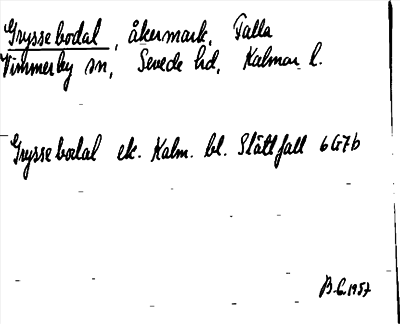 Gryssebodal, åkermark, Falla
Vimmerby sn, Sevede hd, Kalmar l.
Gryssebodal ek. Kalm. bl. Slättfall 6G7b
B.C. 1957